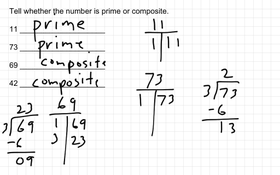 Tell whether the number is prime or composite.
11 prime
73 prime
69 composite
42 composite
11
1 | 11
73
1 | 73
2
3)73
-6
13
23
3)69
-6
09
69
1 | 69
3 | 23